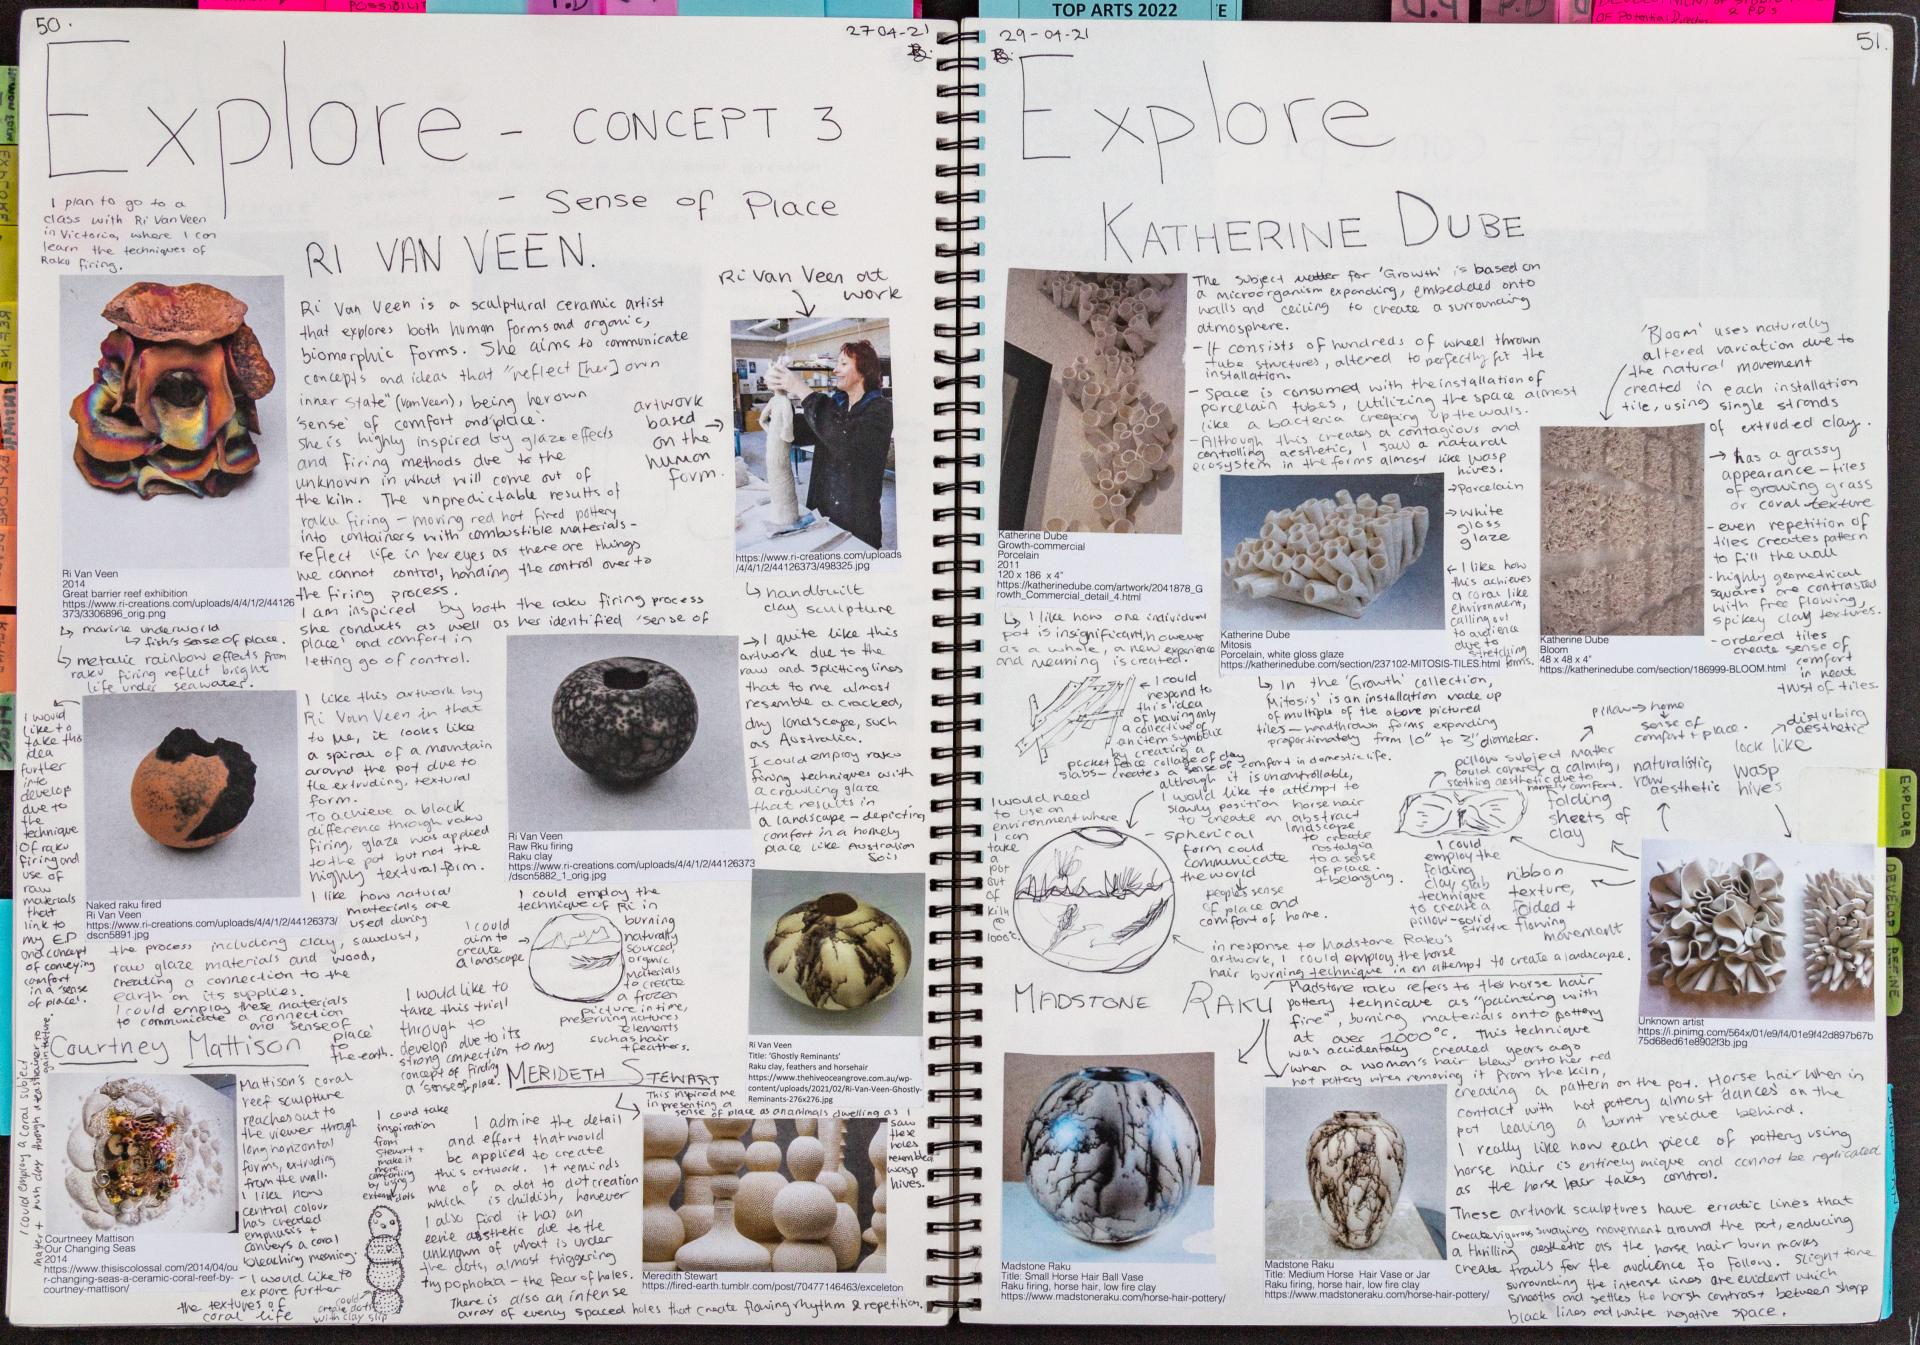 POSSIBILIT
P.D
TOP ARTS 2022
E
P.D
OF Potential Director
& P.D's
50.
27-04-21
Explore - CONCEPT 3
- Sense of Place
I plan to go to a
class with Ri Van Veen
in Victoria, where I can
learn the techniques of
Raku firing.
RI VAN VEEN.
Ri Van Veen is a sculptural ceramic artist
that explores both human forms and organic,
biomorphic forms. She aims to communicate
concepts and ideas that "reflect [her] own
inner state" (Van Veen), being her own
'sense' of comfort and 'place'.
She is highly inspired by glaze effects
and firing methods due to the
unknown in what will come out of
the kiln. The unpredictable results of
raku firing - moving red hot fired pottery
into containers with combustible materials -
reflect life in her eyes as there are things
we cannot control, handing the control over to
the firing process.
I am inspired by both the raku firing process
she conducts as well as her identified 'sense of
place' and comfort in
letting go of control.
Ri Van Veen at
work
artwork
based
on the
human
form.
https://www.ri-creations.com/uploads
/4/4/1/2/44126373/498325.jpg
handbuilt
clay sculpture
Ri Van Veen
2014
Great barrier reef exhibition
https://www.ri-creations.com/uploads/4/4/1/2/44126
373/3306896_orig.png
marine underworld
fish's sense of place.
metalic rainbow effects from
raku firing reflect bright
life under seawater.
I would
like to
take this
idea
further
into
develop
due to
the
technique
of raku
firing and
use of
raw
materials
that
link to
my EP
and concept
of conveying
comfort
in a 'sense
of place'.
I like this artwork by
Ri Van Veen in that
to me, it looks like
a spiral of a mountain
around the pot due to
the extruding, textural
form.
To achieve a black
difference through raku
firing, glaze was applied
to the pot but not the
highly textural form.
I like how natural
materials are
used during
the process including clay, sawdust,
raw glaze materials and wood,
creating a connection to the
earth on its supplies.
I could employ these materials
to communicate a connection
and 'sense of
place'
to
the earth.
Naked raku fired
Ri Van Veen
https://www.ri-creations.com/uploads/4/4/1/2/44126373/
dscn5891.jpg
Ri Van Veen
Raw Rku firing
Raku clay
https://www.ri-creations.com/uploads/4/4/1/2/44126373
/dscn5882_1_orig.jpg
I quite like this
artwork due to the
raw and splitting lines
that to me almost
resemble a cracked,
dry landscape, such
as Australia.
I could employ raku
firing techniques with
a crawling glaze
that results in
a landscape - depicting
comfort in a homely
place like Australian
soil
I could employ the
technique of Ri in
burning
naturally
sourced,
organic
materials
to create
a frozen
picture in time,
preserving natures
elements
such as hair
+ feathers.
I could
aim to
create
a landscape
I would like to
take this trial
through to
develop due to its
strong connection to my
concept of finding
a 'sense of place'.
Ri Van Veen
Title: 'Ghostly Reminants'
Raku clay, feathers and horsehair
https://www.thehiveoceangrove.com.au/wp-
content/uploads/2021/02/Ri-Van-Veen-Ghostly-
Remnants-276x276.jpg
Courtney Mattison
I could employ a coral subject
matter + push clay through a strainer to
gain texture.
Mattison's coral
reef sculpture
reaches out to
the viewer through
long horizontal
forms, extruding
from the wall.
I like how
central colour
has created
emphasis +
conveys a coral
bleaching meaning.
- I would like to
explore further
the textures of
coral life
Courtneey Mattison
Our Changing Seas
2014
https://www.thisiscolossal.com/2014/04/ou
r-changing-seas-a-ceramic-coral-reef-by-
courtney-mattison/
I could take
inspiration
from
Stewart +
make it
more
comforting
by using
external dots
could
create dots
with clay slip
MERIDETH STEWART
This inspired me
in presenting a
sense of place as an animals dwelling as I
saw
these
holes
resembled
wasp
hives.
I admire the detail
and effort that would
be applied to create
this artwork. It reminds
me of a dot to dot creation
which is childish, however
I also find it has an
eerie aesthetic due to the
unknown of what is under
the dots, almost triggering
trypophobia - the fear of holes.
There is also an intense
array of evenly spaced holes that create flowing rhythm & repetition.
Meredith Stewart
https://fired-earth.tumblr.com/post/70477146463/exceleton
29-04-21
51.
Explore
KATHERINE DUBE
The subject matter for 'Growth' is based on
a microorganism expanding, embedded onto
walls and ceiling to create a surrounding
atmosphere.
- It consists of hundreds of wheel thrown
tube structures, altered to perfectly fit the
installation.
- Space is consumed with the installation of
porcelain tubes, utilizing the space almost
like a bacteria creeping up the walls.
- Although this creates a contagious and
controlling aesthetic, I saw a natural
ecosystem in the forms almost like wasp
hives.
Katherine Dube
Growth-commercial
Porcelain
2011
120 x 186 x 4"
https://katherinedube.com/artwork/2041878_G
rowth_Commercial_detail_4.html
I like how one individual
pot is insignificant, however
as a whole, a new experience
and meaning is created.
Porcelain
white
gloss
glaze
I like how
this achieves
a coral like
environment,
calling out
to audience
due to
stretching
forms.
Katherine Dube
Mitosis
Porcelain, white gloss glaze
https://katherinedube.com/section/237102-MITOSIS-TILES.html
In the 'Growth' collection,
'Mitosis' is an installation made up
of multiple of the above pictured
tiles - handthrown forms expanding
proportionately from 10" to 3" diameter.
'Bloom' uses naturally
altered variation due to
the natural movement
created in each installation
tile, using single strands
of extruded clay.
has a grassy
appearance - tiles
of growing grass
or coral texture
- even repetition of
tiles creates pattern
to fill the wall
- highly geometrical
squares are contrasted
with free flowing,
spikey clay textures.
- ordered tiles
create sense of
comfort
in neat
trust of tiles.
Katherine Dube
Bloom
48 x 48 x 4"
https://katherinedube.com/section/186999-BLOOM.html
I could
respond to
this idea
of having only
a collective of
an item symbolic
by creating a
picket fence collage of clay
slabs - creates a sense of comfort in domestic life.
although it is uncontrollable,
I would like to attempt to
slowly position horse hair
to create an abstract
landscape
to create
nostalgia
to a sense
of place
+ belonging.
I would need
to use an
environment where
I can
take
a
pot
out
of
kiln
@
1000°c.
- spherical
form could
communicate
the world
peoples sense
of place and
comfort of home.
pillow → home
sense of
comfort + place.
pillow subject matter
could convey a calming,
soothing aesthetic due to
homely comfort.
folding
sheets of
clay
I could
employ the
folding
clay slab
technique
to create a
pillow-solid
structure
naturalistic,
raw
aesthetic
disturbing
aesthetic
look like
wasp
hives
ribbon
texture,
folded +
flowing
movement
Unknown artist
https://i.pinimg.com/564x/01/e9/f4/01e9f42d897b67b
75d68ed61e8902f3b.jpg
in response to Madstone Raku's
artwork, I could employ the horse
hair burning technique in an attempt to create a landscape.
MADSTONE RAKU
Madstone raku refers to the horse hair
pottery technique as "painting with
fire", burning materials onto pottery
at over 1000°c. This technique
was accidentally created years ago
when a woman's hair blew onto her red
hot pottery when removing it from the kiln,
creating a pattern on the pot. Horse hair when in
contact with hot pottery almost dances on the
pot leaving a burnt residue behind.
I really like how each piece of pottery using
horse hair is entirely unique and cannot be replicated
as the horse hair takes control.
These artwork sculptures have erratic lines that
create vigorous swaying movement around the pot, enducing
a thrilling aesthetic as the horse hair burn marks
create trails for the audience to follow. Slight tone
surrounding the intense lines are evident which
smooths and settles the harsh contrast between sharp
black lines and white negative space.
Madstone Raku
Title: Small Horse Hair Ball Vase
Raku firing, horse hair, low fire clay
https://www.madstoneraku.com/horse-hair-pottery/
Madstone Raku
Title: Medium Horse Hair Vase or Jar
Raku firing, horse hair, low fire clay
https://www.madstoneraku.com/horse-hair-pottery/
EXPLORE
DEVELOP
REFINE